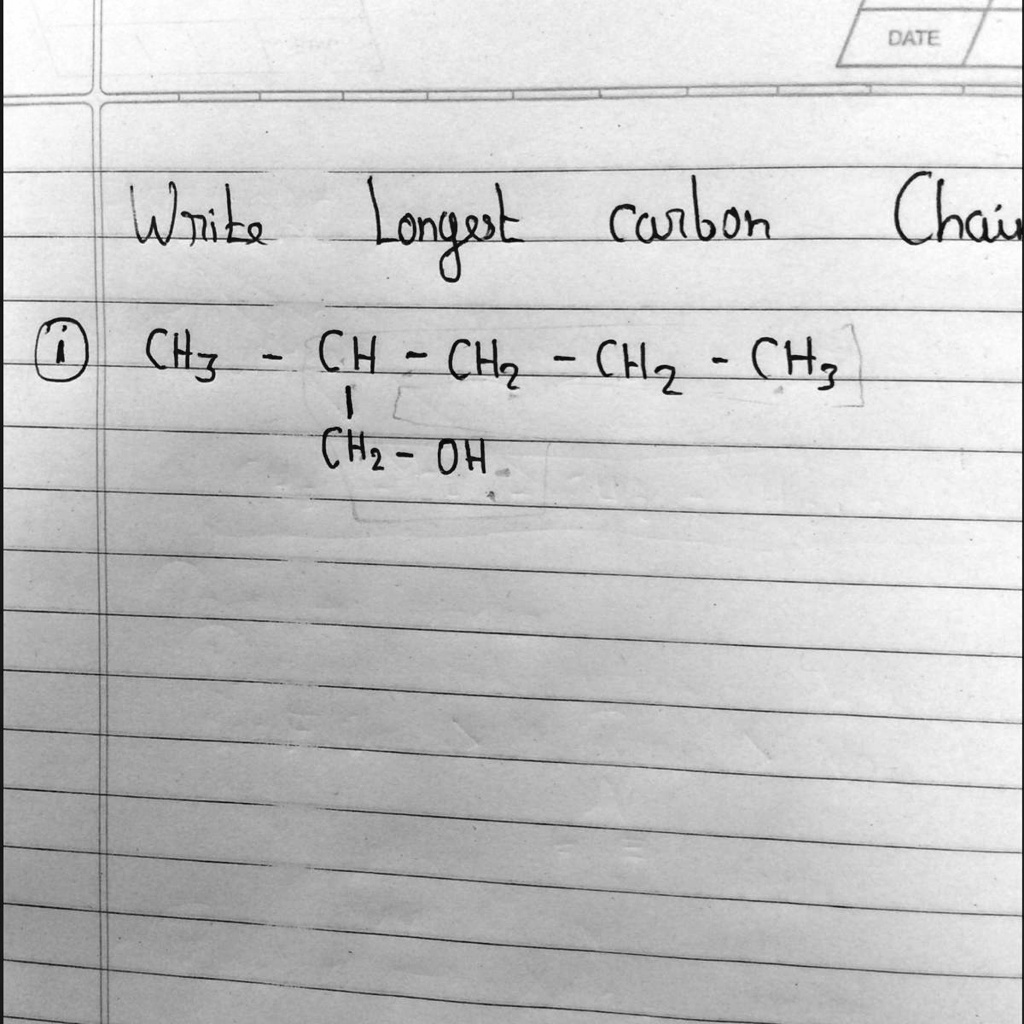 DATE
Write Longest carbon Chain
(i) CH₃ - CH - CH₂ - CH₂ - CH₃
|
CH₂ - OH